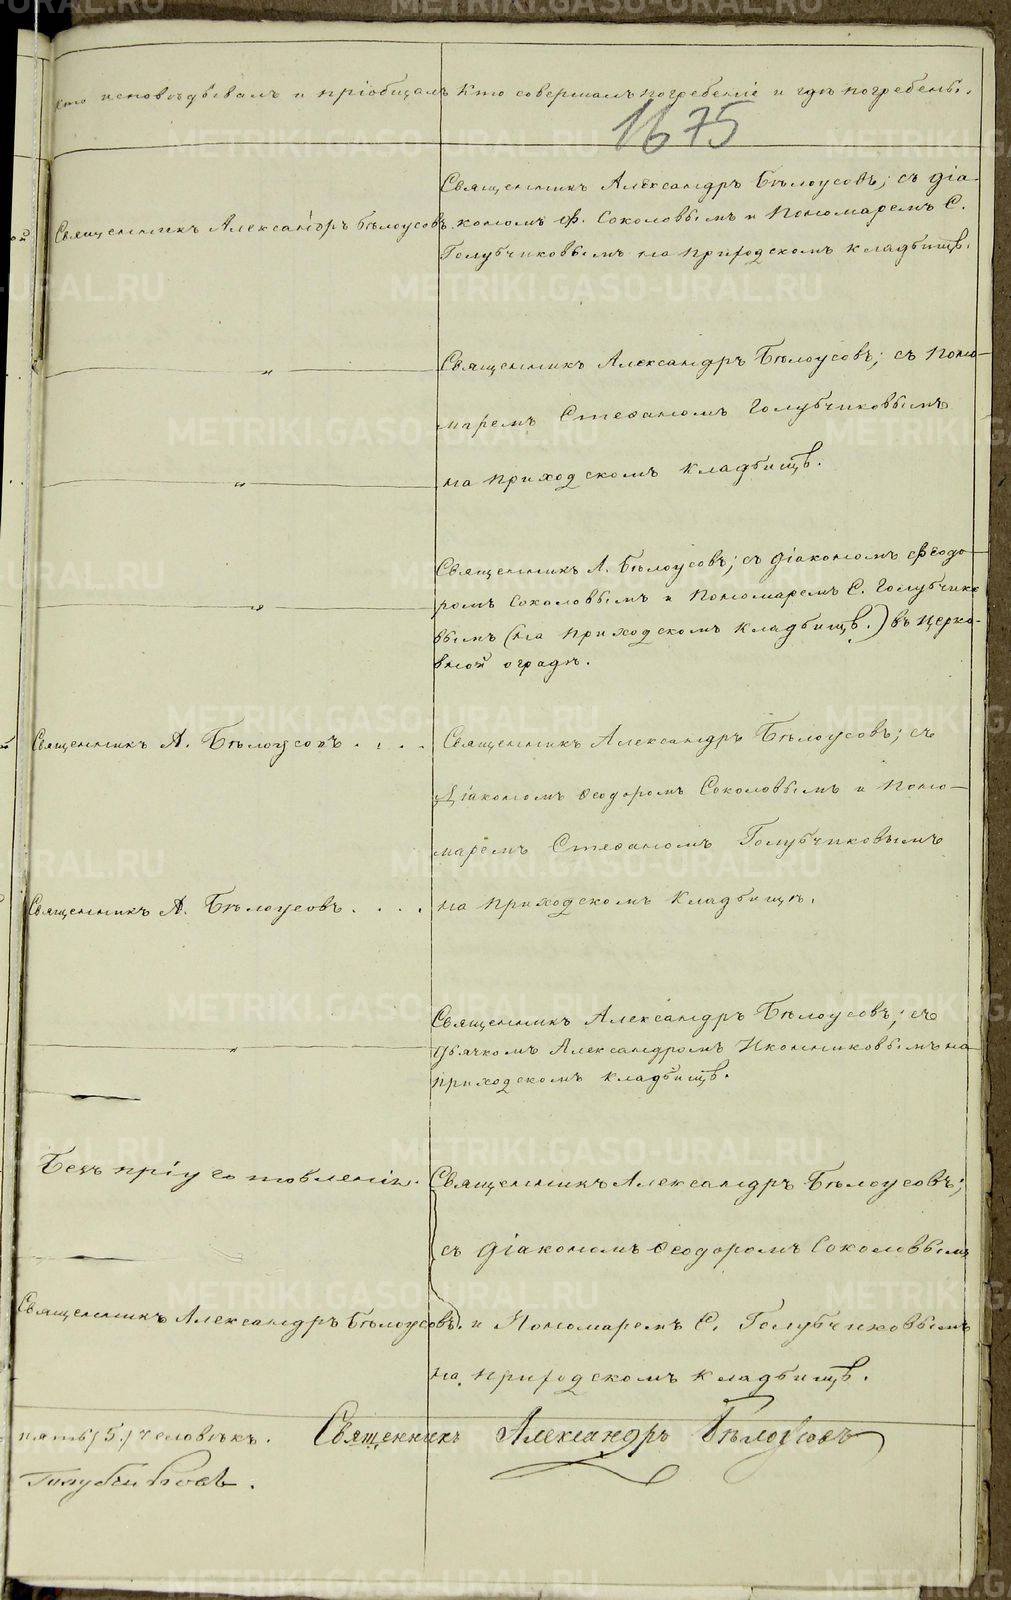 Кто исповѣдывалъ и пріобщалъ
Кто совершалъ погребеніе и гдѣ погребены.
1675
Священникъ Александръ Бѣлоусовъ
Священникъ Александръ Бѣлоусовъ; съ діа-
кономъ Ф. Соколовымъ и Пономаремъ С.
Голубчиковымъ на приходскомъ кладбищѣ.
„
Священникъ Александръ Бѣлоусовъ; съ Поно-
маремъ Стефаномъ Голубчиковымъ
„
на приходскомъ кладбищѣ.
Священникъ А. Бѣлоусовъ; съ діакономъ Ѳеодо-
„
ромъ Соколовымъ и Пономаремъ С. Голубчико
вымъ (на приходскомъ кладбищѣ.) въ церко-
вной оградѣ.
Священникъ А. Бѣлоусовъ . . . .
Священникъ Александръ Бѣлоусовъ; съ
Діакономъ Ѳеодоромъ Соколовымъ и Поно-
маремъ Стефаномъ Голубчиковымъ
Священникъ А. Бѣлоусовъ . . . .
на приходскомъ кладбищѣ.
Священникъ Александръ Бѣлоусовъ; съ
„
дьячкомъ Александромъ Иконниковымъ на
приходскомъ кладбищѣ.
Безъ приуготовленія.
Священникъ Александръ Бѣлоусовъ;
съ діакономъ Ѳеодоромъ Соколовымъ
Священникъ Александръ Бѣлоусовъ.
и Пономаремъ С. Голубчиковымъ
на приходскомъ кладбищѣ.
пять /5./ человѣкъ. Священникъ Александръ Бѣлоусовъ
Голубчиковъ.
METRIKI.GASO-URAL.RU